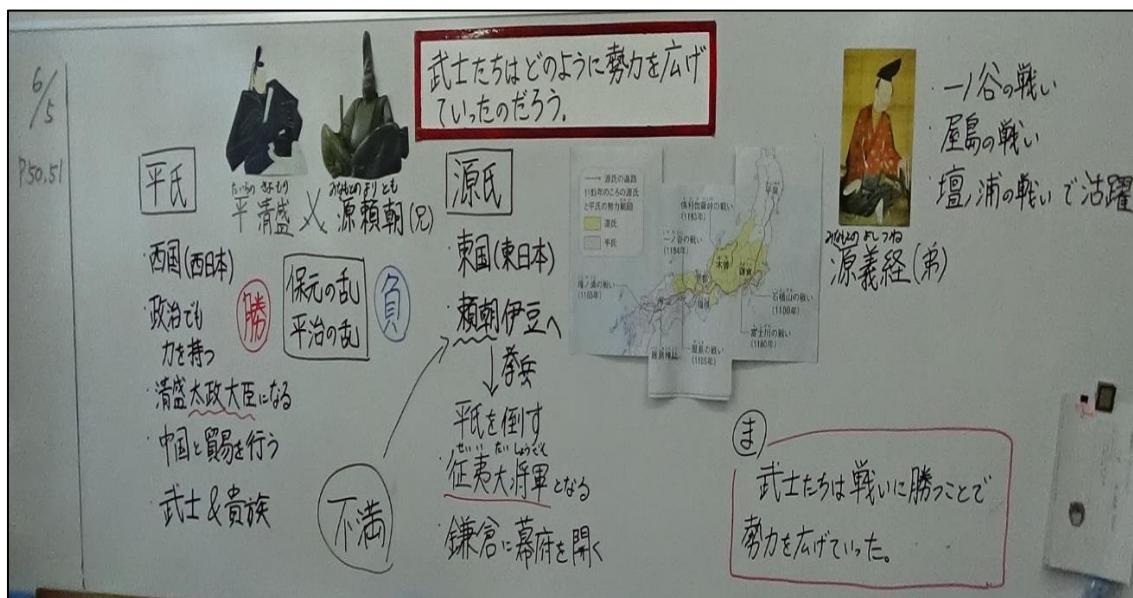 6/5
P50,51
武士たちはどのように勢力を広げ
ていったのだろう。
平氏
たいらの きよもり
平清盛
みなもとの より とも
源頼朝(兄)
・西国(西日本)
・政治でも
力を持つ
・清盛太政大臣になる
・中国と貿易を行う
・武士&貴族
勝
保元の乱
平治の乱
負
不満
源氏
・東国(東日本)
・頼朝伊豆へ
挙兵
平氏を倒す
せい い たい しょうぐん
征夷大将軍となる
・鎌倉に幕府を開く
源氏の進路
1183年のころの源氏
と平氏の勢力範囲
源氏
平氏
平泉
倶利伽羅峠の戦い
(1183年)
一ノ谷の戦い
(1184年)
木曽
鎌倉
京都
福原
壇ノ浦の戦い
(1185年)
石橋山の戦い
(1180年)
富士川の戦い
(1180年)
厳島神社
屋島の戦い
(1185年)
みなもとの よし つね
源義経(弟)
・一ノ谷の戦い
・屋島の戦い
・壇ノ浦の戦いで活躍
ま
武士たちは戦いに勝つことで
勢力を広げていった。